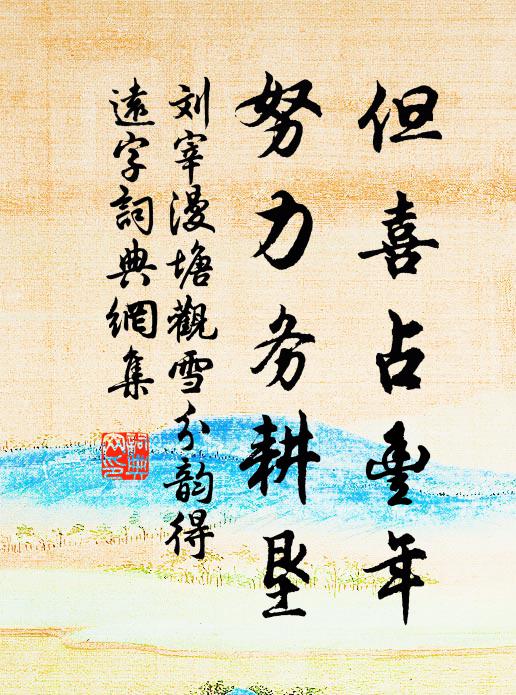 但喜占豐年
努力务耕垦
刘宰漫塘觀雪分韵得
遠字詞典網集